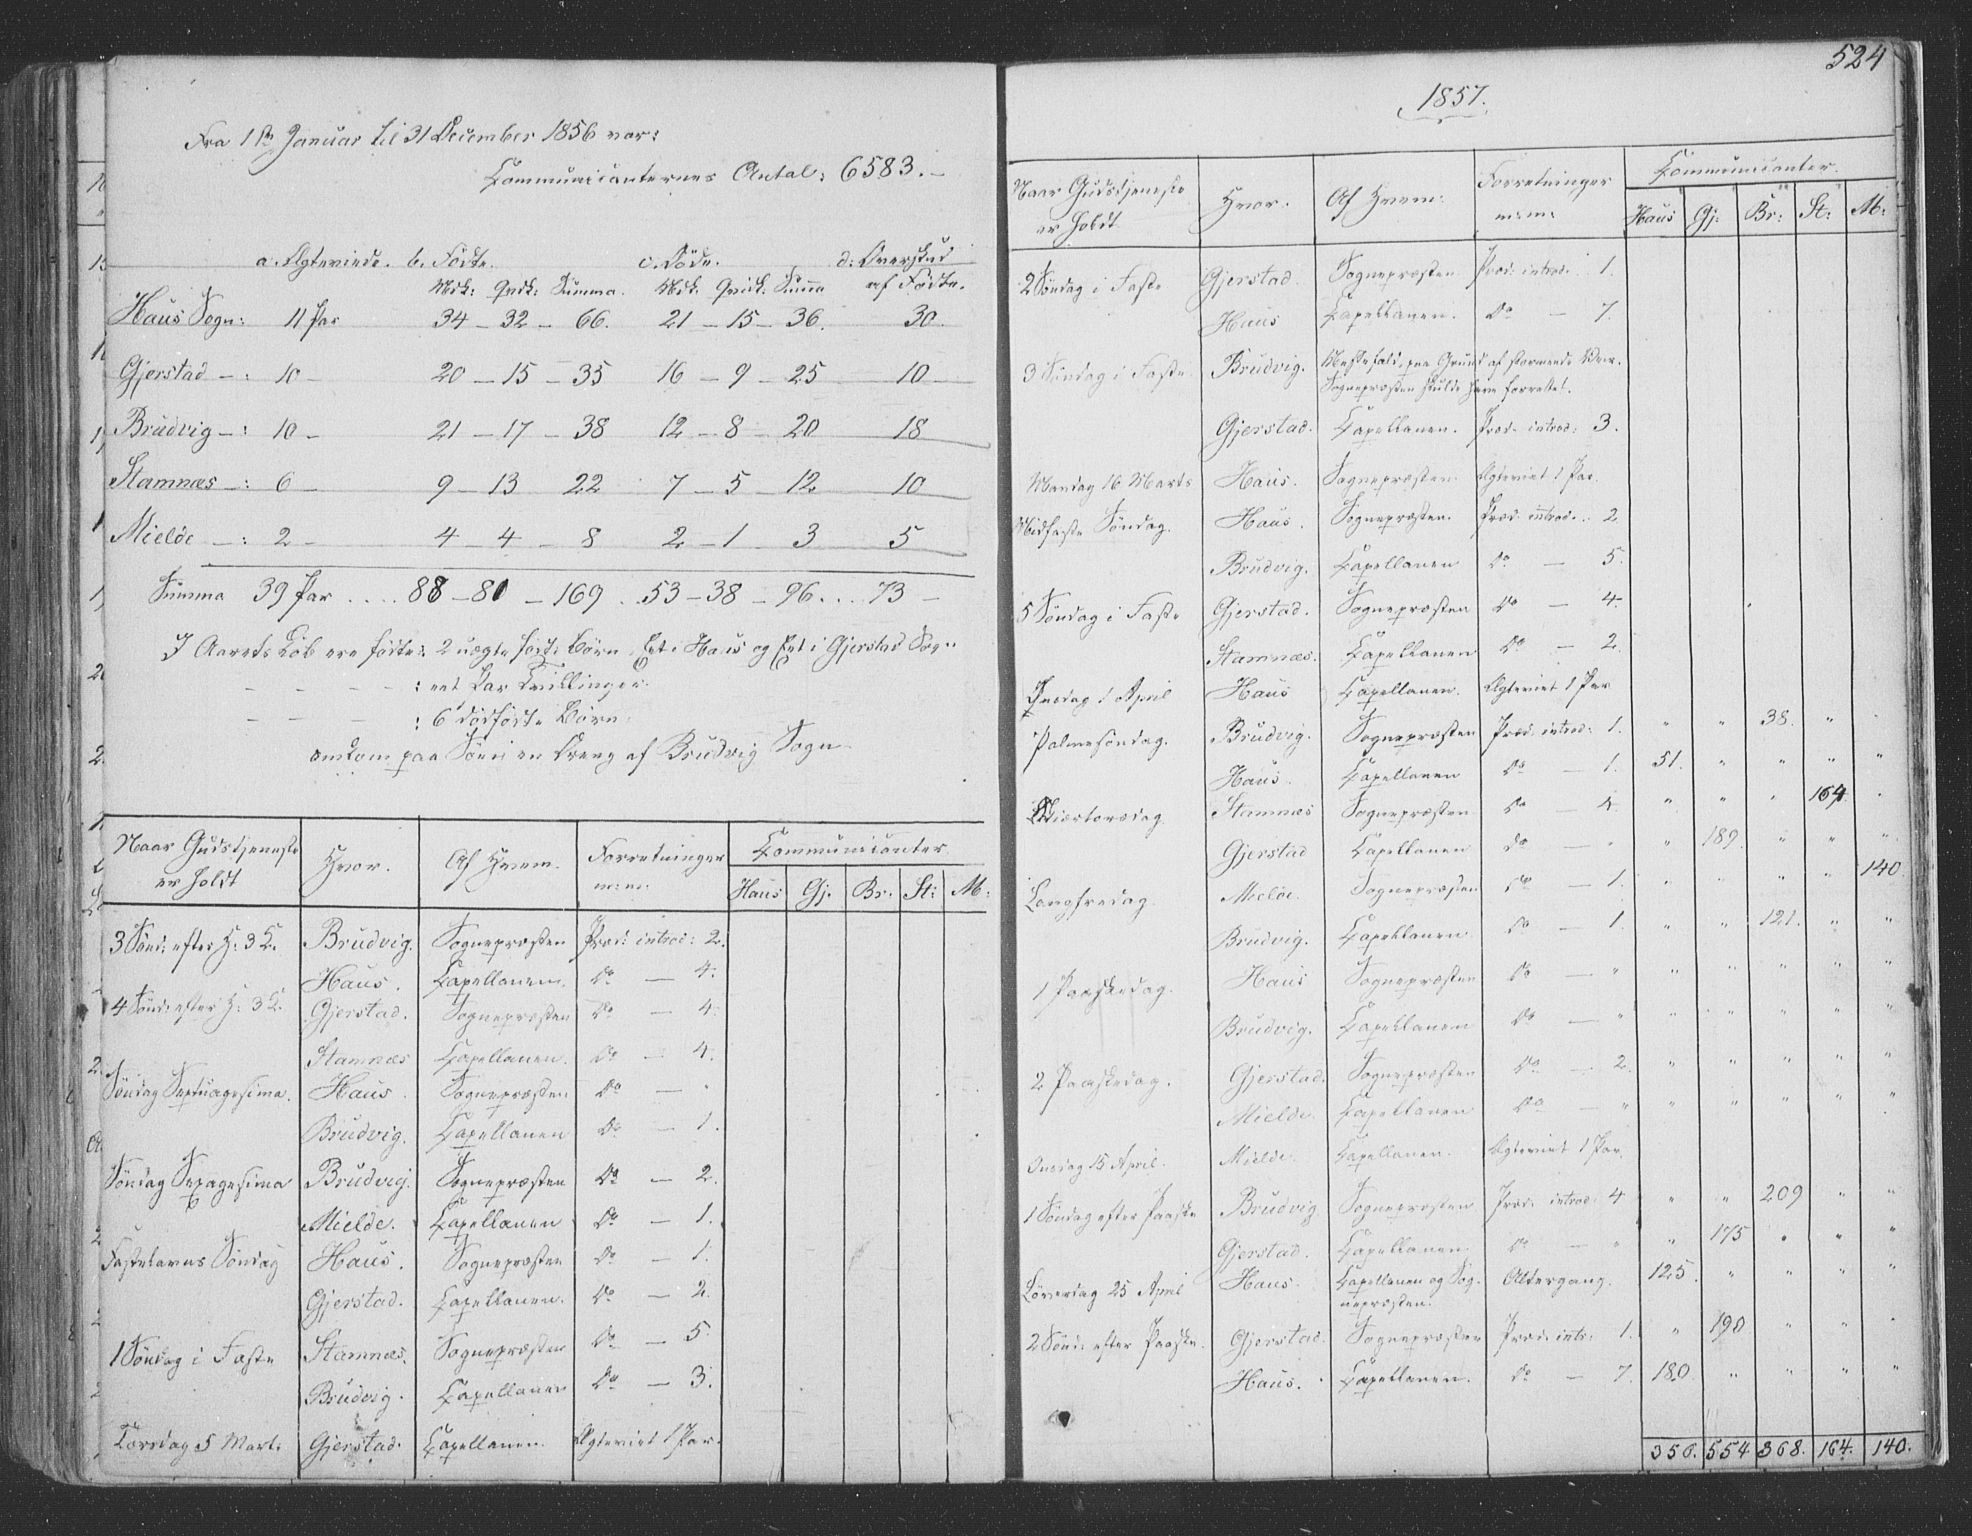 Fra 1ste Januar til 31 December 1856 var:
Communicanternes Antal: 6583.-
a. Ægteviede. b. Fødte. c. Døde. d: Overskud
Mdk: Qvdk: Summa. Mdk. Qvidk. Summa af Fødte.
Haus Sogn: 11 Par 34 - 32 - 66. 21 - 15 - 36. 30.
Gjerstad -: 10 - 20 - 15 - 35 16 - 9 - 25 10
Brudvig -: 10 - 21 - 17 - 38 12 - 8 - 20 18
Stamnæs -: 6 - 9 - 13 22 7 - 5 - 12 10
Mielde -: 2 - 4 - 4 - 8 2 - 1 3 5
Summa 39 Par .... 88 - 81 - 169 .. 53 - 38 - 96 ... 73 -
I Aarets Løb ere fødte: 2 uægte fødte Børn, Et i Haus og Eet i Gjerstad Sogn
- - - - : eet Par Tvillinger.
- - - : 6 dødfødte Børn.
omkom paa Søen en Dreng af Brudvig Sogn
Naar Gudstjeneste er holdt Hvor. Af Hvem. Forretninger m: m: Communicanter
Haus Gj. Br. St: M:
3 Sønd: efter H: 3 K. Brudvig. Sognepræsten Præd: introd: 2.
Haus. Capellanen. Do - 4.
4 Sønd: efter H: 3 K. Gjerstad. Sognepræsten Do - 4.
Stamnæs Capellanen. Do - 4.
Søndag Septuagesima. Haus. Sognepræsten Do - "
Brudvig. Capellanen Do - 1.
Søndag Sexagesima Brudvig. Sognepræsten Do - 2.
Mielde. Capellanen Do - 1.
Fastelavns Søndag Haus. Sognepræsten Do - 1.
Gjerstad. Capellanen. Do - 2.
1 Søndag i Faste Stamnæs. Sognepræsten Do - 5.
Brudvig. Capellanen Do - 3.
Torsdag 5 Mart: Gjerstad. Capellanen. Ægteviet 1 Par.
524
1857.
Naar Gudstjeneste er holdt Hvor. Af Hvem: Forretninger m: m: Communicanter.
Haus Gj: Br: St: M:
2 Søndag i Faste Gjerstad. Sognepræsten Præd: introd: 1.
Haus Capellanen. Do - 7.
3 Søndag i Faste Brudvig. Messefald, paa Grund af stormende Veir.
Sognepræsten skulde have forrettet.
Gjerstad. Capellanen. Præd. introd: 3.
Mandag 16 Marts Haus. Sognepræsten. Ægteviet 1 Par.
Midfaste Søndag. Haus. Sognepræsten. Præd: introd.: 2
Brudvig. Capellanen Do - 5.
5 Søndag i Faste Gjerstad. Sognepræsten Do - 4.
Stamnæs. Capellanen Do - 2.
Onsdag 1 April Haus Capellanen. Ægteviet 1 Par
Palmesøndag. Brudvig. Sognepræsten Præd: introd: 1. " " 38. " "
Haus. Capellanen Do - 1. 51. " " " "
Skiærtorsdag Stamnæs Sognepræsten Do - 4. " " " 164 "
Gjerstad Capellanen Do - " " 189. " " "
Langfredag. Mielde. Sognepræsten Do - 1. " " " " 140
Brudvig. Capellanen Do - 1. " " 121. " "
1 Paaskedag. Haus Sognepræsten Do - " " " " " "
Brudvig. Capellanen Do - " " " " " "
2 Paaskedag. Gjerstad. Sognepræsten Do - 2. " " " " "
Mielde. Capellanen Do - " " " " " "
Onsdag 15 April. Mielde. Capellanen. Ægteviet 1 Par.
1 Søndag efter Paaske Brudvig Sognepræsten Præd: introd: 4 " " 209 " "
Gjerstad. Capellanen. Do - " " 175 " " "
Løverdag 25 April Haus. Capellanen og Sog- Altergang. 125. " " " "
nepræsten.
2 Sønd: efter Paaske. Gjerstad. Sognepræsten Præd: intr: 1. " 190 " " "
Haus. Capellanen. Do - 7. 180. " " " "
356. 554 368. 164. 140.